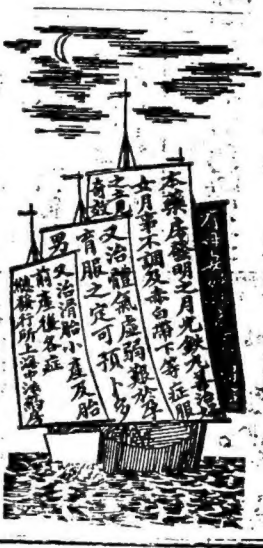 本藥房發明之月光鉄丸專治婦
女月事不調及赤白帶下等症服
之立見
奇效
又治體氣虛弱艱於孕
育服之定可預卜多
男
又治滑胎小產及胎
前產後各症
總發行所上海中法藥房